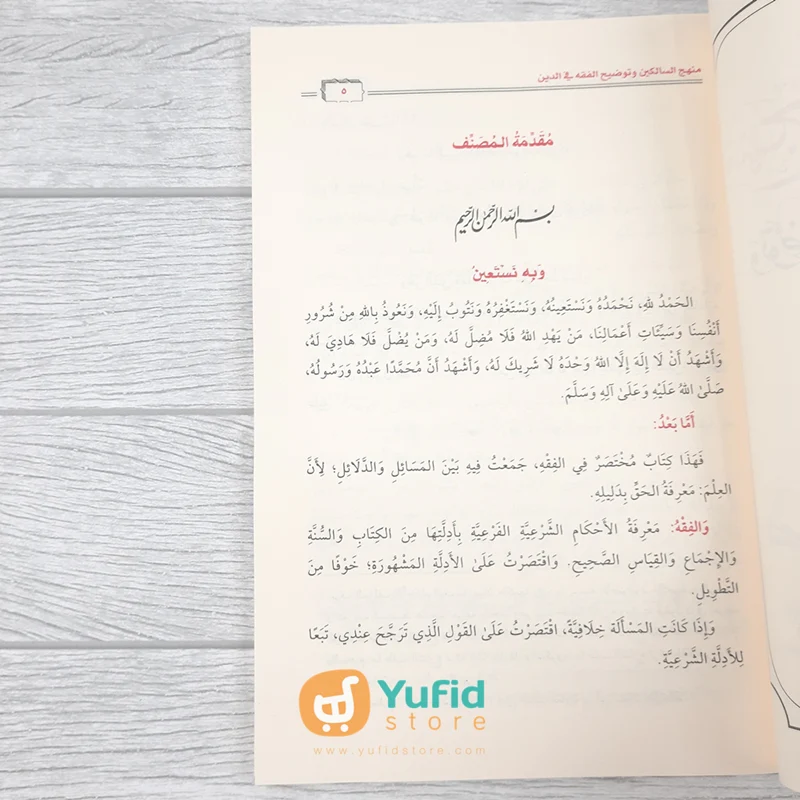 منهج السالكين وتوضيح الفقه في الدين
٥
مُقَدِّمَةُ المُصَنِّف
بسم الله الرحمن الرحيم
وَبِهِ نَسْتَعِينُ
الحَمْدُ للهِ، نَحْمَدُهُ وَنَسْتَعِينُهُ، وَنَسْتَغْفِرُهُ وَنَتُوبُ إِلَيْهِ، وَنَعُوذُ بِاللهِ مِنْ شُرُورِ
أَنْفُسِنَا وَسَيِّئَاتِ أَعْمَالِنَا، مَنْ يَهْدِ اللهُ فَلَا مُضِلَّ لَهُ، وَمَنْ يُضْلِلْ فَلَا هَادِيَ لَهُ،
وَأَشْهَدُ أَنْ لَا إِلَهَ إِلَّا اللهُ وَحْدَهُ لَا شَرِيكَ لَهُ، وَأَشْهَدُ أَنَّ مُحَمَّدًا عَبْدُهُ وَرَسُولُهُ،
صَلَّىٰ اللهُ عَلَيْهِ وَعَلَىٰ آلِهِ وَسَلَّمَ.
أَمَّا بَعْدُ:
فَهَذَا كِتَابٌ مُخْتَصَرٌ فِي الفِقْهِ، جَمَعْتُ فِيهِ بَيْنَ المَسَائِلِ وَالدَّلَائِلِ؛ لِأَنَّ
العِلْمَ: مَعْرِفَةُ الحَقِّ بِدَلِيلِهِ.
وَالفِقْهُ: مَعْرِفَةُ الأَحْكَامِ الشَّرْعِيَّةِ الفَرْعِيَّةِ بِأَدِلَّتِهَا مِنَ الكِتَابِ وَالسُّنَّةِ
وَالإِجْمَاعِ وَالقِيَاسِ الصَّحِيحِ. وَاقْتَصَرْتُ عَلَىٰ الأَدِلَّةِ المَشْهُورَةِ؛ خَوْفًا مِنَ
التَّطْوِيلِ.
وَإِذَا كَانَتِ المَسْأَلَة خِلَافِيَّةً، اقْتَصَرْتُ عَلَىٰ القَوْلِ الَّذِي تَرَجَّحَ عِنْدِي، تَبَعًا
لِلأَدِلَّةِ الشَّرْعِيَّةِ.
Yufid
store
www.yufidstore.com